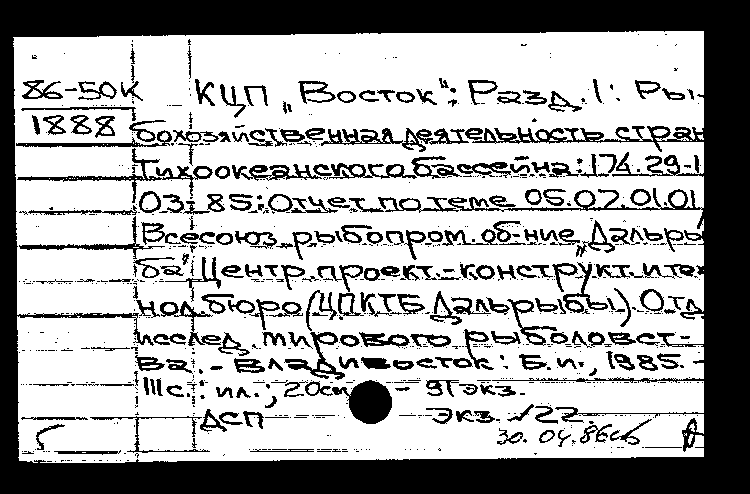 86-50К КЦП „Восток“; Разд. 1: Ры-
1888 бохозяйственная деятельность стран
Тихоокеанского бассейна: 174.29-1
03-85: Отчет по теме 05.07.01.01
Всесоюз. рыбопром. об-ние „Дальры-
ба“, Центр. проект.-конструкт. и тех
нол. бюро (ЦПКТБ Дальрыбы). Отд.
исслед. мирового рыболовст-
ва. - Владивосток: Б.и., 1985. -
111с.: ил.; 20см - 91 экз.
ДСП Экз. №22.
30.04.86